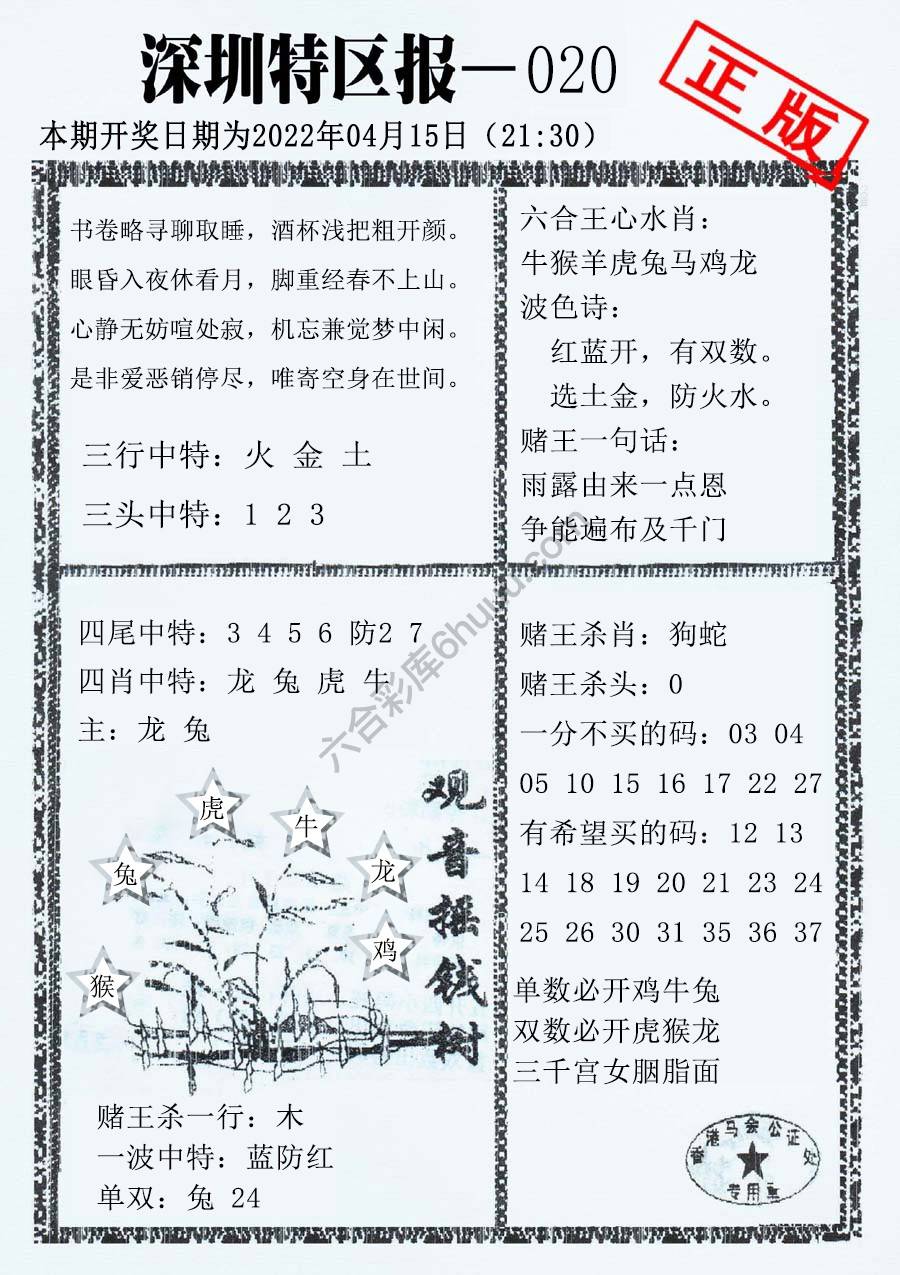 深圳特区报—020
正版
本期开奖日期为2022年04月15日（21:30）
书卷略寻聊取睡，酒杯浅把粗开颜。
眼昏入夜休看月，脚重经春不上山。
心静无妨喧处寂，机忘兼觉梦中闲。
是非爱恶销停尽，唯寄空身在世间。
三行中特：火 金 土
三头中特：1 2 3
六合王心水肖：
牛猴羊虎兔马鸡龙
波色诗：
红蓝开，有双数。
选土金，防火水。
赌王一句话：
雨露由来一点恩
争能遍布及千门
四尾中特：3 4 5 6 防2 7
四肖中特：龙 兔 虎 牛
主：龙 兔
虎
牛
兔
龙
鸡
猴
观音摇钱树
赌王杀一行：木
一波中特：蓝防红
单双：兔 24
赌王杀肖：狗蛇
赌王杀头：0
一分不买的码：03 04
05 10 15 16 17 22 27
有希望买的码：12 13
14 18 19 20 21 23 24
25 26 30 31 35 36 37
单数必开鸡牛兔
双数必开虎猴龙
三千宫女胭脂面
香港马会公证处
专用章
六合彩库6huuu.com